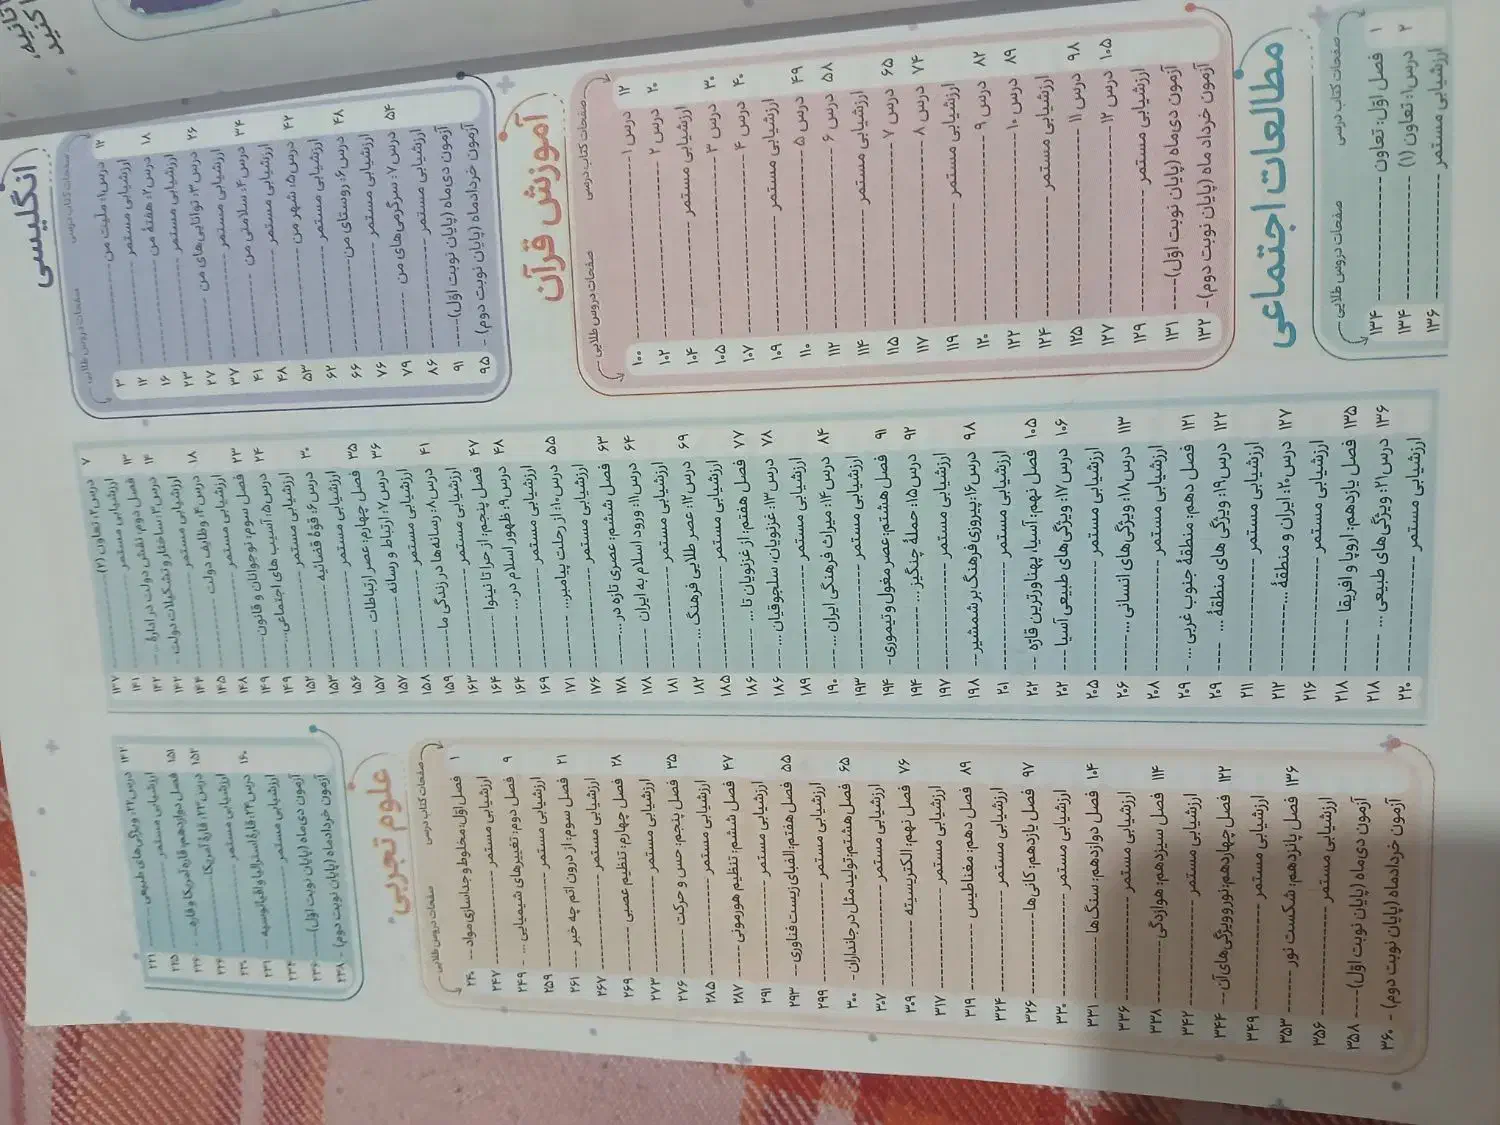 انگلیسی
صفحات دروس طلایی صفحات کتاب درسی
۳ درس۱: ملّیت من ۱۲
۱۲ ارزشیابی مستمر
۱۶ درس۲: هفتهٔ من ۱۸
۲۳ ارزشیابی مستمر
۲۷ درس۳: توانایی‌های من ۲۶
۳۷ ارزشیابی مستمر
۴۱ درس۴: سلامتی من ۳۴
۴۸ ارزشیابی مستمر
۵۳ درس۵: شهر من ۴۲
۶۲ ارزشیابی مستمر
۶۶ درس۶: روستای من ۴۸
۷۶ ارزشیابی مستمر
۷۹ درس۷: سرگرمی‌های من ۵۴
۸۶ ارزشیابی مستمر
۹۱ آزمون دی‌ماه (پایان نوبت اوّل)
۹۵ آزمون خردادماه (پایان نوبت دوم)
آموزش قرآن
صفحات دروس طلایی صفحات کتاب درسی
۱۰۰ درس ۱ ۱۲
۱۰۲ درس ۲ ۲۰
۱۰۴ ارزشیابی مستمر
۱۰۵ درس ۳ ۳۰
۱۰۷ درس ۴ ۴۰
۱۰۹ ارزشیابی مستمر
۱۱۰ درس ۵ ۴۹
۱۱۲ درس ۶ ۵۸
۱۱۴ ارزشیابی مستمر
۱۱۵ درس ۷ ۶۵
۱۱۷ درس ۸ ۷۴
۱۱۹ ارزشیابی مستمر
۱۲۰ درس ۹ ۸۲
۱۲۲ درس ۱۰ ۸۹
۱۲۴ ارزشیابی مستمر
۱۲۵ درس ۱۱ ۹۸
۱۲۷ درس ۱۲ ۱۰۵
۱۲۹ ارزشیابی مستمر
۱۳۱ آزمون دی‌ماه (پایان نوبت اوّل)
۱۳۲ آزمون خرداد ماه (پایان نوبت دوم)
مطالعات اجتماعی
صفحات دروس طلایی صفحات کتاب درسی
۱۳۴ فصل اوّل: تعاون ۱
۱۳۴ درس۱: تعاون (۱) ۲
۱۳۶ ارزشیابی مستمر
۱۳۷ درس۲: تعاون (۲) ۷
۱۴۱ ارزشیابی مستمر
۱۴۲ فصل دوم: نقش دولت در ادارهٔ ... ۱۳
۱۴۲ درس۳: ساختار و تشکیلات دولت ۱۴
۱۴۴ ارزشیابی مستمر
۱۴۴ درس۴: وظایف دولت ۱۸
۱۴۵ ارزشیابی مستمر
۱۴۸ فصل سوم: نوجوانان و قانون ۲۳
۱۴۹ درس۵: آسیب های اجتماعی... ۲۴
۱۴۹ ارزشیابی مستمر
۱۵۲ درس ۶: قوّهٔ قضائیه ۳۰
۱۵۳ ارزشیابی مستمر
۱۵۶ فصل چهارم: عصر ارتباطات ۳۵
۱۵۷ درس۷: ارتباط و رسانه ۳۶
۱۵۷ ارزشیابی مستمر
۱۵۸ درس۸: رسانه‌ها در زندگی ما ۴۱
۱۵۹ ارزشیابی مستمر
۱۶۳ فصل پنجم: از حرا تا نینوا ۴۷
۱۶۴ درس۹: ظهور اسلام در... ۴۸
۱۶۴ ارزشیابی مستمر
۱۶۹ درس۱۰: از رحلت پیامبر... ۵۵
۱۷۱ ارزشیابی مستمر
۱۷۶ فصل ششم: عصری تازه در... ۶۳
۱۷۸ درس۱۱: ورود اسلام به ایران ۶۴
۱۷۸ ارزشیابی مستمر
۱۸۱ درس۱۲: عصر طلایی فرهنگ... ۶۹
۱۸۲ ارزشیابی مستمر
۱۸۵ فصل هفتم: از غزنویان تا... ۷۷
۱۸۶ درس۱۳: غزنویان، سلجوقیان... ۷۸
۱۸۶ ارزشیابی مستمر
۱۸۹ درس۱۴: میراث فرهنگی ایران... ۸۴
۱۹۰ ارزشیابی مستمر
۱۹۳ فصل هشتم: عصر مغول و تیموری ۹۱
۱۹۴ درس۱۵: حملهٔ چنگیز... ۹۲
۱۹۴ ارزشیابی مستمر
۱۹۷ درس۱۶: پیروزی فرهنگ بر شمشیر ۹۸
۱۹۸ ارزشیابی مستمر
۲۰۱ فصل نهم: آسیا، پهناورترین قارّه ۱۰۵
۲۰۲ درس۱۷: ویژگی‌های طبیعی آسیا ۱۰۶
۲۰۲ ارزشیابی مستمر
۲۰۵ درس۱۸: ویژگی‌های انسانی... ۱۱۳
۲۰۶ ارزشیابی مستمر
۲۰۸ فصل دهم: منطقهٔ جنوب غربی... ۱۲۱
۲۰۹ درس۱۹: ویژگی های منطقهٔ ... ۱۲۲
۲۰۹ ارزشیابی مستمر
۲۱۱ درس۲۰: ایران و منطقهٔ... ۱۲۷
۲۱۲ ارزشیابی مستمر
۲۱۶ فصل یازدهم: اروپا و افریقا ۱۳۵
۲۱۸ درس۲۱: ویژگی‌های طبیعی... ۱۳۶
۲۱۸ ارزشیابی مستمر
۲۲۰
۲۲۱ درس۲۲: ویژگی‌های طبیعی ۱۴۲
۲۲۵ ارزشیابی مستمر
۲۲۶ فصل دوازدهم: قاره آمریکا و قاره... ۱۵۱
۲۲۶ درس۲۳: قارهٔ آمریکا ۱۵۲
۲۳۰ ارزشیابی مستمر
۲۳۱ درس۲۴: قارهٔ استرالیا و اقیانوسیه ۱۶۰
۲۳۴ ارزشیابی مستمر
۲۳۶ آزمون دی‌ماه (پایان نوبت اوّل)
۲۳۸ آزمون خردادماه (پایان نوبت دوم)
علوم تجربی
صفحات دروس طلایی صفحات کتاب درسی
۲۴۰ فصل اوّل: مخلوط و جداسازی مواد ۱
۲۴۷ ارزشیابی مستمر
۲۴۹ فصل دوم: تغییرهای شیمیایی ... ۹
۲۵۹ ارزشیابی مستمر
۲۶۱ فصل سوم: از درون اتم چه خبر ۲۱
۲۶۷ ارزشیابی مستمر
۲۶۹ فصل چهارم: تنظیم عصبی ۲۸
۲۷۳ ارزشیابی مستمر
۲۷۶ فصل پنجم: حس و حرکت ۳۵
۲۸۵ ارزشیابی مستمر
۲۸۷ فصل ششم: تنظیم هورمونی ۴۷
۲۹۱ ارزشیابی مستمر
۲۹۳ فصل هفتم: الفبای زیست فناوری ۵۵
۲۹۹ ارزشیابی مستمر
۳۰۰ فصل هشتم: تولیدمثل در جانداران ۶۵
۳۰۷ ارزشیابی مستمر
۳۰۹ فصل نهم: الکتریسیته ۷۶
۳۱۷ ارزشیابی مستمر
۳۱۹ فصل دهم: مغناطیس ۸۹
۳۲۴ ارزشیابی مستمر
۳۲۶ فصل یازدهم: کانی‌ها ۹۷
۳۳۰ ارزشیابی مستمر
۳۳۱ فصل دوازدهم: سنگ‌ها ۱۰۴
۳۳۶ ارزشیابی مستمر
۳۳۸ فصل سیزدهم: هوازدگی ۱۱۴
۳۴۲ ارزشیابی مستمر
۳۴۴ فصل چهاردهم: نور و ویژگی‌های آن ۱۲۲
۳۴۹ ارزشیابی مستمر
۳۵۳ فصل پانزدهم: شکست نور ۱۳۶
۳۵۶ ارزشیابی مستمر
۳۵۸ آزمون دی‌ماه (پایان نوبت اوّل)
۳۶۰ آزمون خردادماه (پایان نوبت دوم)